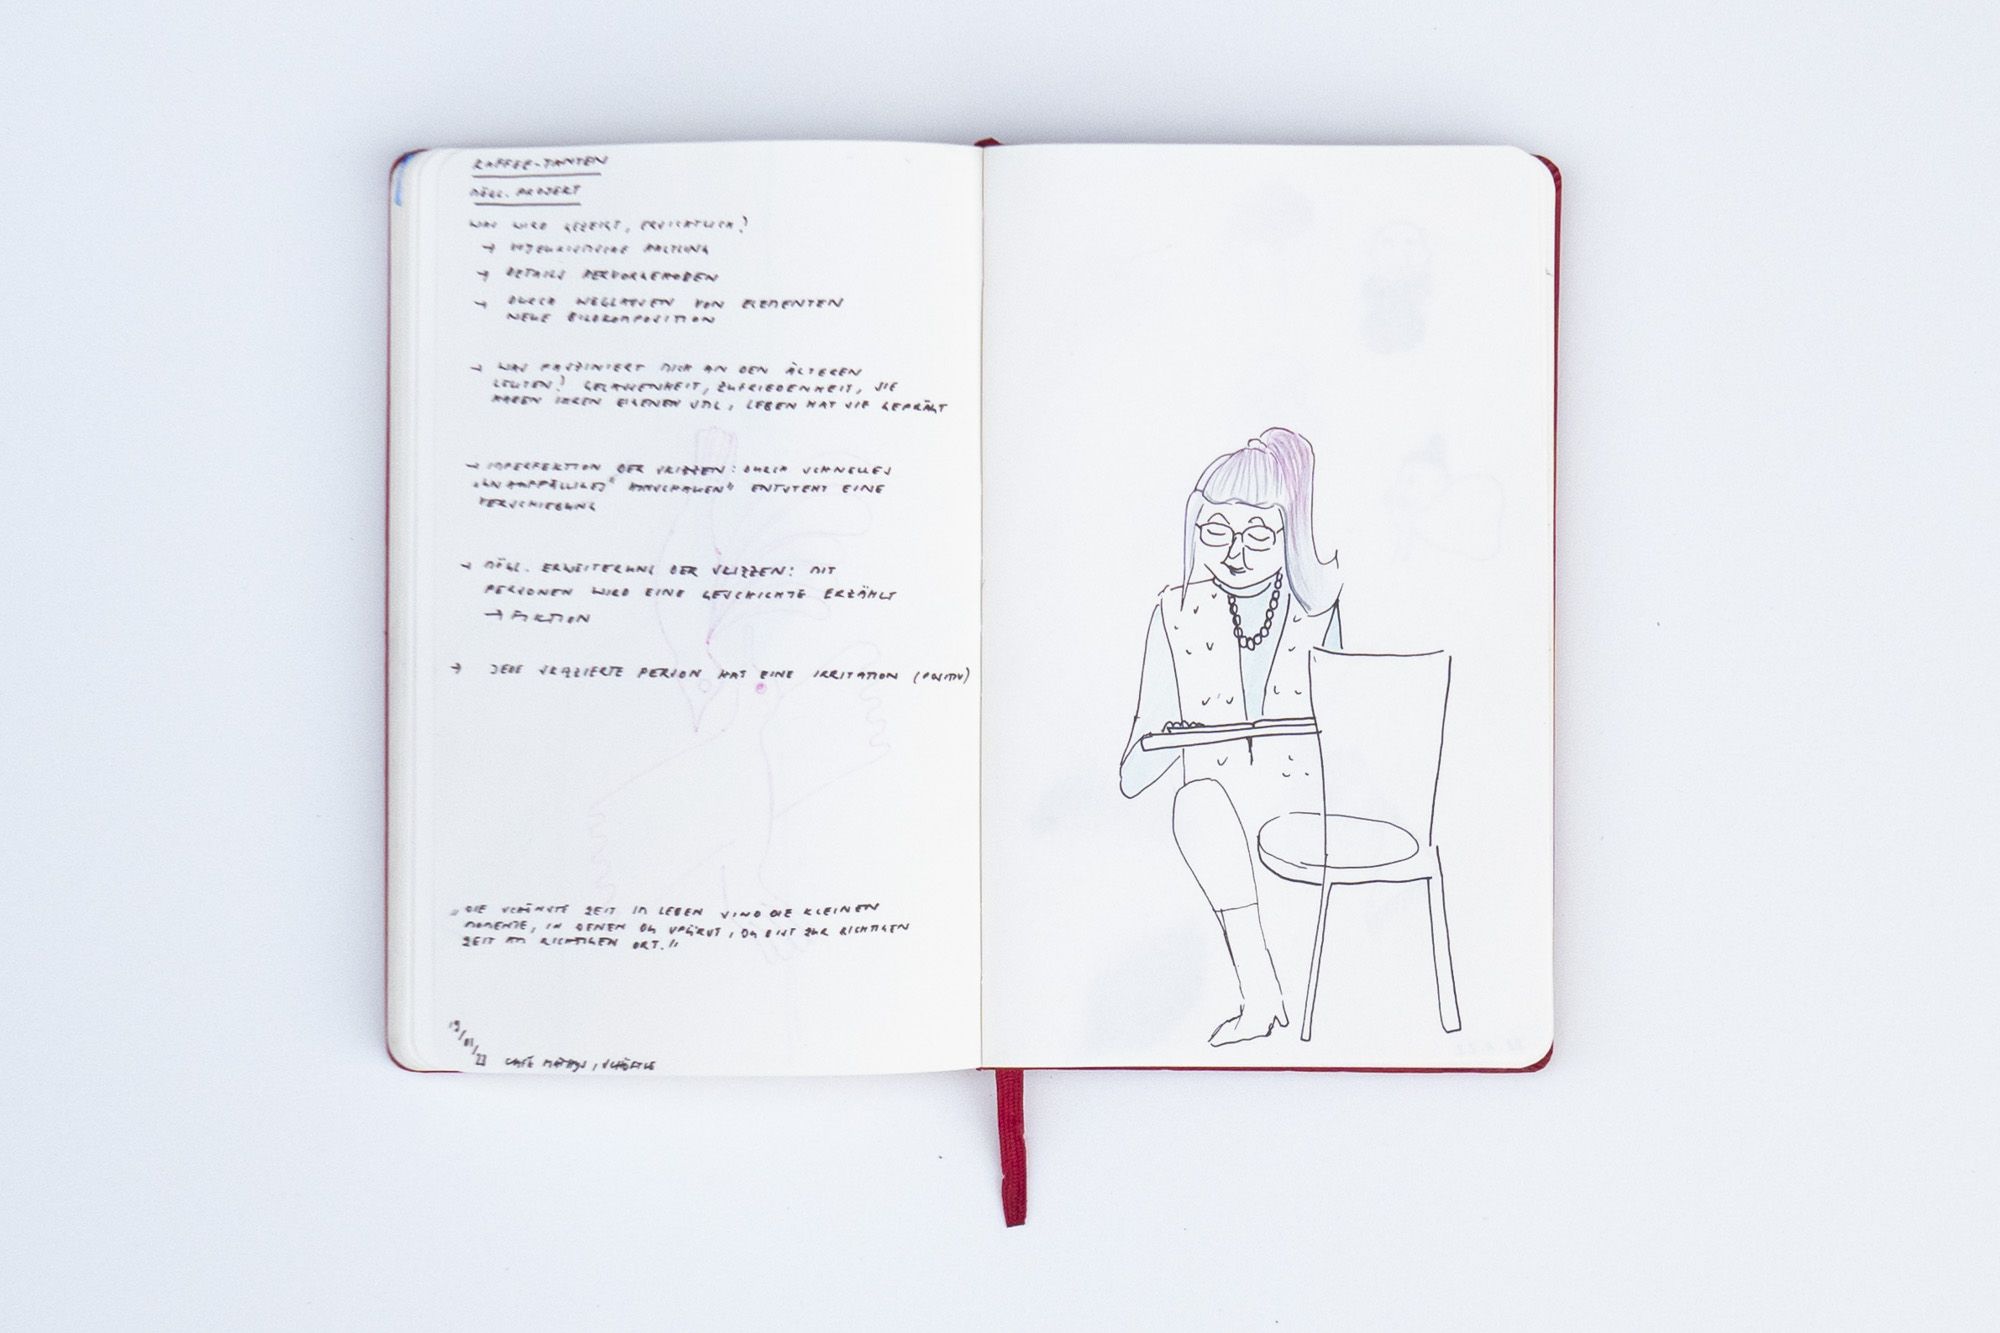 KAFFEE-TANTEN
MÖGL. PROJEKT
WAS WIRD GEZEIGT, ERSICHTLICH?
→ VOYEURISTISCHE HALTUNG
→ DETAILS HERVORGEHOBEN
→ DURCH WEGLASSEN VON ELEMENTEN
NEUE BILDKOMPOSITION
→ WAS FASZINIERT DICH AN DEN ÄLTEREN
LEUTEN? GELASSENHEIT, ZUFRIEDENHEIT, SIE
HABEN IHREN EIGENEN STIL, LEBEN HAT SIE GEPRÄGT
→ IMPERFEKTION DER SKIZZEN: DURCH SCHNELLES
„UNAUFFÄLLIGES" ANSCHAUEN" ENTSTEHT EINE
VERSCHIEBUNG
→ MÖGL. ERWEITERUNG DER SKIZZEN: MIT
PERSONEN WIRD EINE GESCHICHTE ERZÄHLT
→ FIKTION
→ JEDE SKIZZIERTE PERSON HAT EINE IRRITATION (POSITIV)
„DIE SCHÖNSTE ZEIT IM LEBEN SIND DIE KLEINEN
MOMENTE, IN DENEN DU SPÜRST, DU BIST ZUR RICHTIGEN
ZEIT AM RICHTIGEN ORT."
19/01/22 CAFÉ